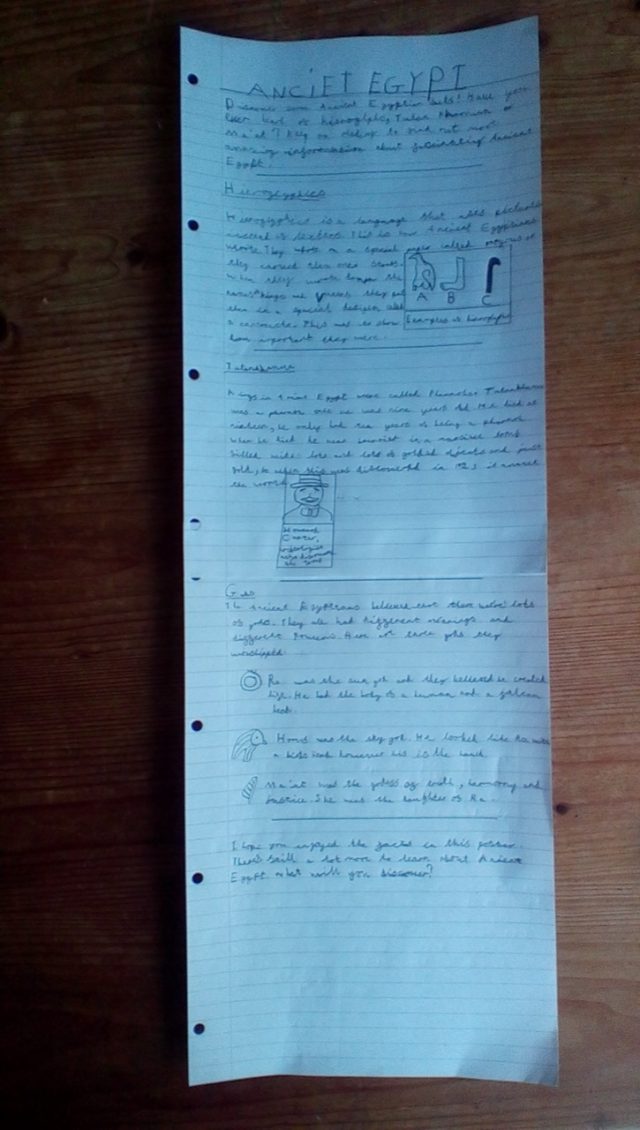 ANCIET EGYPT
Discover some Ancient Egyptian facts! Have you
ever heard of hieroglyphs, Tutan or
Ma'at? on to find out more
amazing information about fascinating Ancient
Egypt!
Hieroglyphics
is a language that uses pictures
instead of letters. This is how Ancient Egyptians
wrote. They wrote on a special paper called or
they carved them onto
when they wrote down the
names kings and they put
them in a special design called
a This was to show
how important they were.
A B C
Examples of
Kings in Egypt were called
was a pharaoh once he was nine years old. He died at
nineteen, he only had ten years of being a pharaoh
when he died. He was in a massive tomb
filled with lots and lots of golden objects and
gold, so when this was discovered in it
the world
Howard
Carter,
the tomb
Gods
The Ancient Egyptians believed that there were lots
of gods. They all had different meanings and
different powers. Here are three gods they
worshipped.
Ra was the sun god and they believed he created
life. He had the body of a human and a falcon
head.
Horus was the sky god. He looked like Ra with
a head however his is the
Ma'at was the of truth, harmony and
justice. She was the daughter of Ra.
I hope you enjoyed the facts in this poster.
There's still a lot more to learn about Ancient
Egypt. what will you discover?